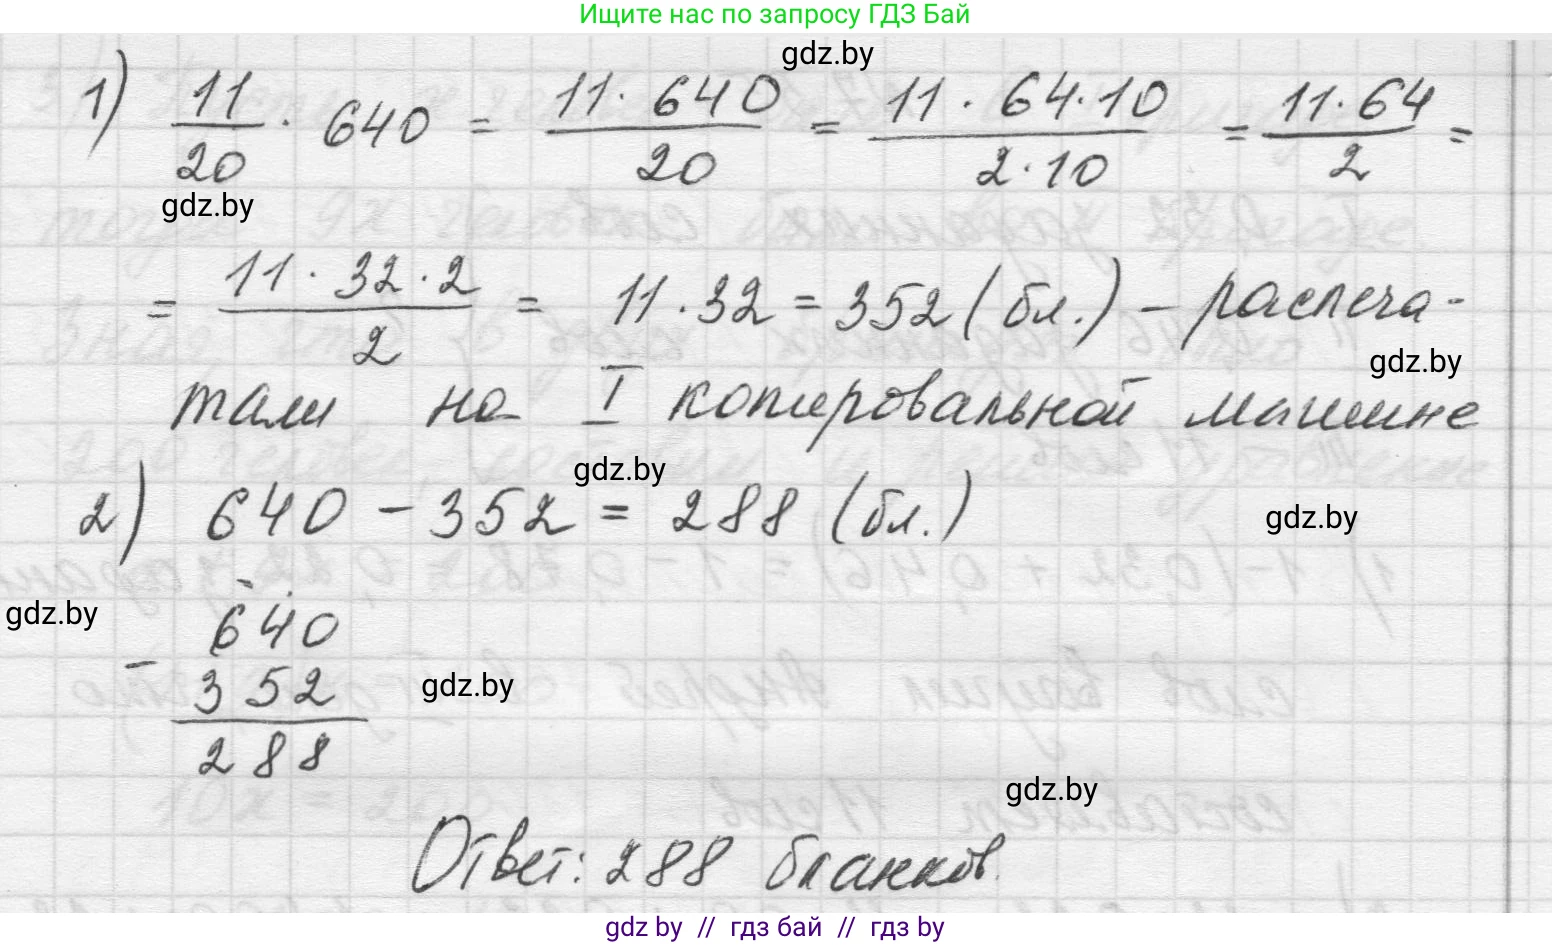 Ищите нас по запросу ГДЗ Бай
gdz.by
1) 11/20 · 640 = 11 · 640/20 = 11 · 64 · 10/2 · 10 = 11 · 64/2 =
gdz.by
= 11 · 32 · 2/2 = 11 · 32 = 352 (бл.) – распеча-
gdz.by
тали на I копировальной машине
gdz.by
2) 640 – 352 = 288 (бл.)
gdz.by
gdz.by
640
–
352
gdz.by
288
gdz.by
Ответ: 288 бланков.
gdz.by // гдз бай // гдз by